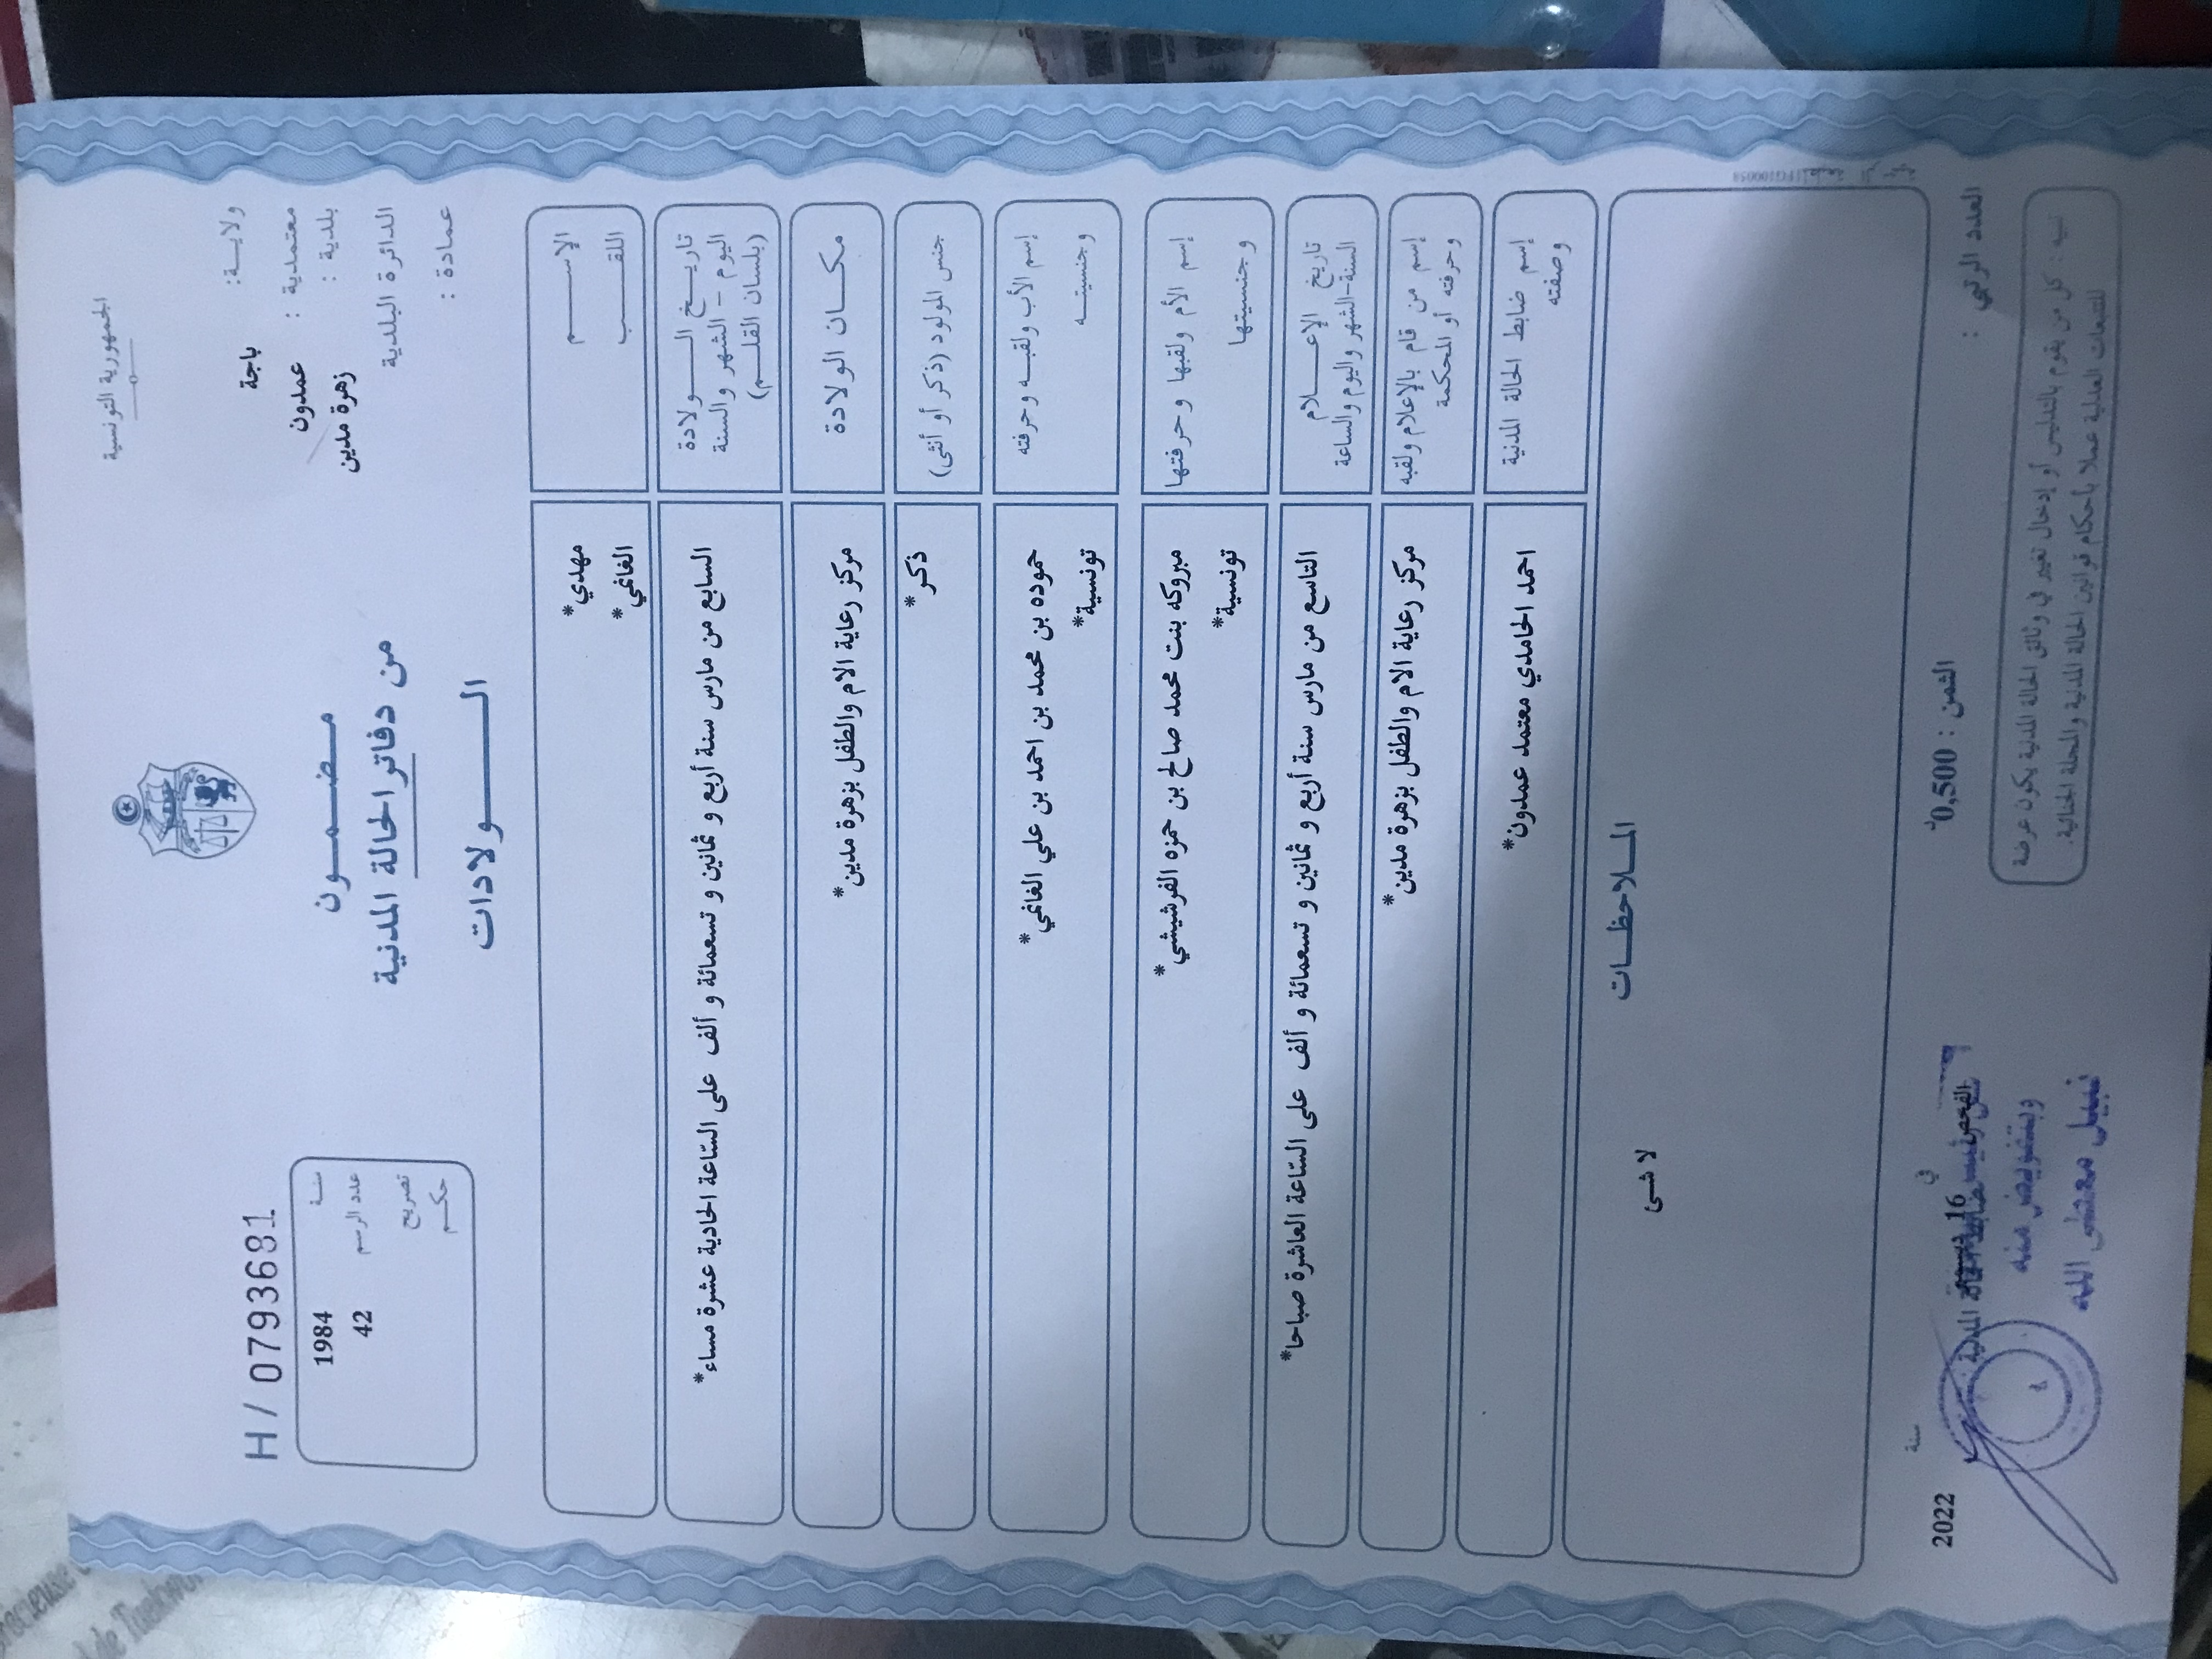 الجمهورية التونسية
ولايـة: باجة
معتمدية : عمدون
بلدية : زهرة مدين
الدائرة البلدية
عمادة :
مـضـمـــون
من دفاتر الحالة المدنية
الــــولادات
H / 07936681
سنـة 1984
عدد الرسم 42
تصريح
حكـم
الإســـــم مهدي*
اللقـــب الغانمي*
تاريـــخ الــــولادة
اليوم - الشهر والسنة
(بلسان القلـــم)
السابع من مارس سنة أربع و ثمانين و تسعمائة و ألف على الساعة الحادية عشرة مساء*
مكـــان الولادة مركز رعاية الام والطفل بزهرة مدين*
جنس المولود (ذكر أو أنثى) ذكر*
إسم الأب ولقبـه وحرفته حموده بن محمد بن احمد بن علي الغانمي*
وجنسيتـــه تونسية*
إسم الأم ولقبها وحرفتها مبروكه بنت محمد صالح بن حمزه الفرشيشي*
وجنسيتها تونسية*
تاريخ الإعـــــلام
السنة-الشهر واليوم والساعة
التاسع من مارس سنة أربع و ثمانين و تسعمائة و ألف على الساعة العاشرة صباحا*
إسم من قام بالإعلام ولقبه
وحرفته أو المحكمة
مركز رعاية الام والطفل بزهرة مدين*
إسم ضابط الحالة المدنية
وصفته
احمد الحامدي معتمد عمدون*
المـــلاحظـــات
لا شىء
العدد الرتبي :
الثمن : 0,500د
في 16
سنة 2022
المدنية
وبتفويض منه
نبيل معطى الله
تنبيه : كل من يقوم بالتدليس أو إدخال تغيير في وثائق الحالة المدنية يكون عرضة
للتتبعات العدلية عملا بأحكام قوانين الحالة المدنية والمجلة الجنائية.